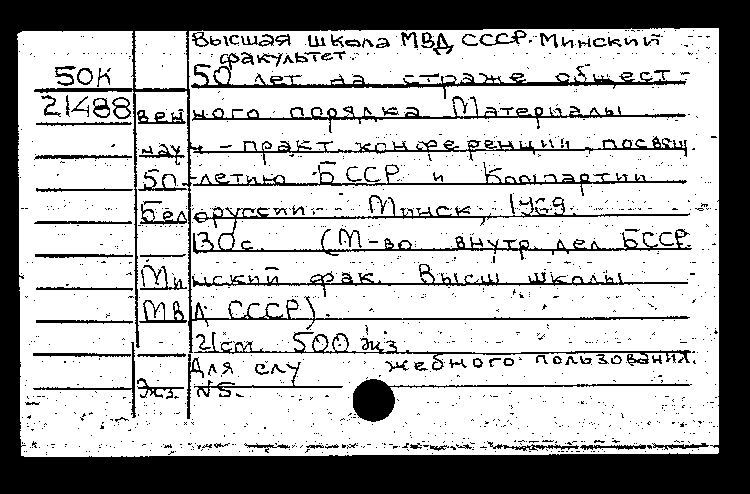 Высшая школа МВД СССР. Минский
факультет.
50К 50 лет на страже общест-
21488 венного порядка Материалы
науч-практ конференции, посвящ.
50-летию БССР и Компартии
Белоруссии. Минск, 1969.
130с. (М-во внутр. дел БССР
Минский фак. Высш школы
МВД СССР).
21см. 500 экз.
Для служебного пользования.
Экз. №5.